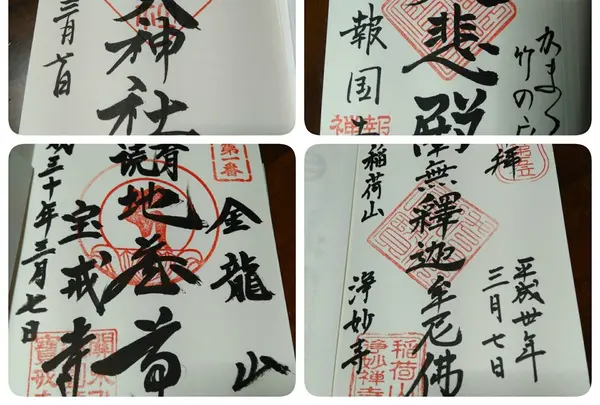 神社
三月七日
大悲殿
報国
かまくら
竹の
報
禅
第一番
金龍山
地蔵尊
宝戒寺
成三十年三月七日
拝
南無釋迦牟尼佛
稲荷山
浄妙寺
平成卅年
三月七日
稲荷山
浄妙禅寺